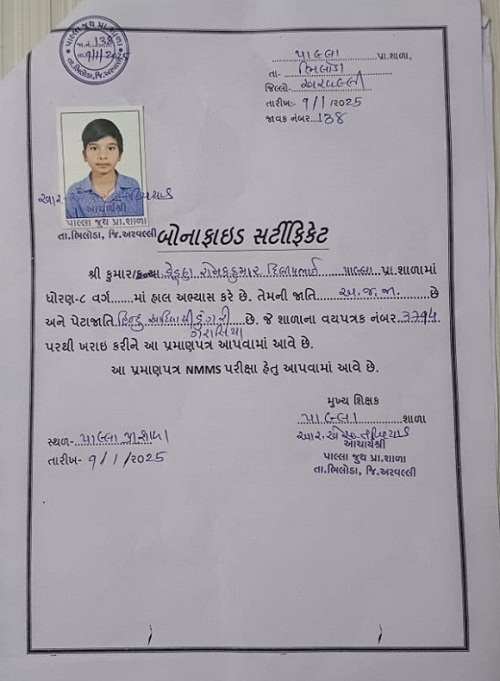 પાલ્લા જુથ પ્રા.શાળા
જા.નં. 138
તા. 9/1/2025
તા.ભિલોડા, જિ.અરવલ્લી
પાલ્લા પ્રા.શાળા,
તા- ભિલોડા
જિલ્લો- અરવલ્લી
તારીખ:- 9/1/2025
જાવક નંબર. 138
આચાર્યશ્રી
પાલ્લા જુથ પ્રા.શાળા
તા.ભિલોડા, જિ.અરવલ્લી
બોનાફાઇડ સર્ટીફિકેટ
શ્રી કુમાર/કન્યા રોનકકુમાર દિલીપભાઈ પાલ્લા પ્રા.શાળામાં
ધોરણ-૮ વર્ગ......માં હાલ અભ્યાસ કરે છે. તેમની જાતિ અ.જ.જા. છે
અને પેટાજાતિ હિન્દુ આદિવાસી ડુંગરી ગરાસિયા છે. જે શાળાના વયપત્રક નંબર 3794
પરથી ખરાઇ કરીને આ પ્રમાણપત્ર આપવામાં આવે છે.
આ પ્રમાણપત્ર NMMS પરીક્ષા હેતુ આપવામાં આવે છે.
મુખ્ય શિક્ષક
પાલ્લા શાળા
સ્થળ- પાલ્લા પ્રા.શાળા
તારીખ- 9/1/2025
આચાર્યશ્રી
પાલ્લા જુથ પ્રા.શાળા
તા.ભિલોડા, જિ.અરવલ્લી